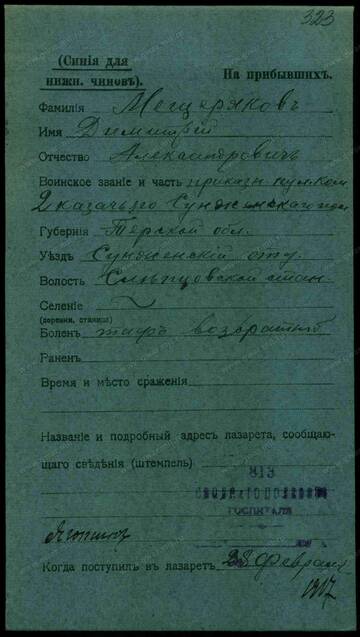 323
(Синія для
нижн. чиновъ).
На прибывшихъ.
Фамилія Мещеряковъ
Имя Димитрій
Отчество Александровичъ
Воинское званіе и часть приказн пул. ком
2 казачьяго Сунженскаго полк
Губернія Терской обл.
Уѣздъ Сунженскій отд.
Волость Слѣпцовской стан.
Селеніе
(деревня, станица)
Боленъ тифъ возвратный
Раненъ
Время и мѣсто сраженія
Названіе и подробный адресъ лазарета, сообщаю-
щаго свѣдѣнія (штемпель)
813
СВОДНАГО ПОЛЕВОГО
ГОСПИТАЛЯ
Когда поступилъ въ лазаретъ 28 Февраля
1917